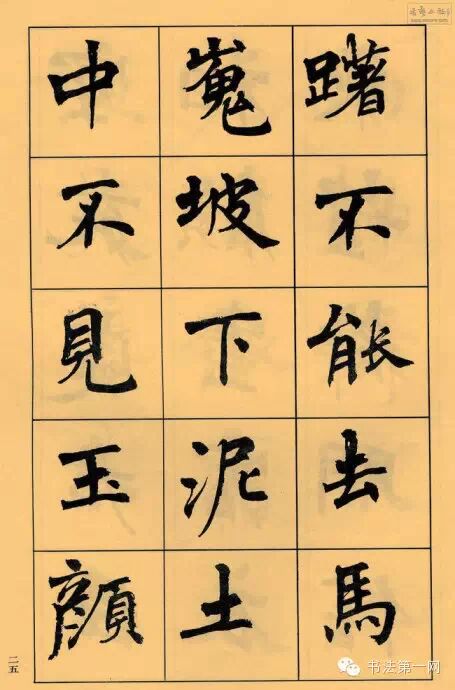 躇不能去馬
嵬坡下泥土
中不見玉顔
二五
书法第一网